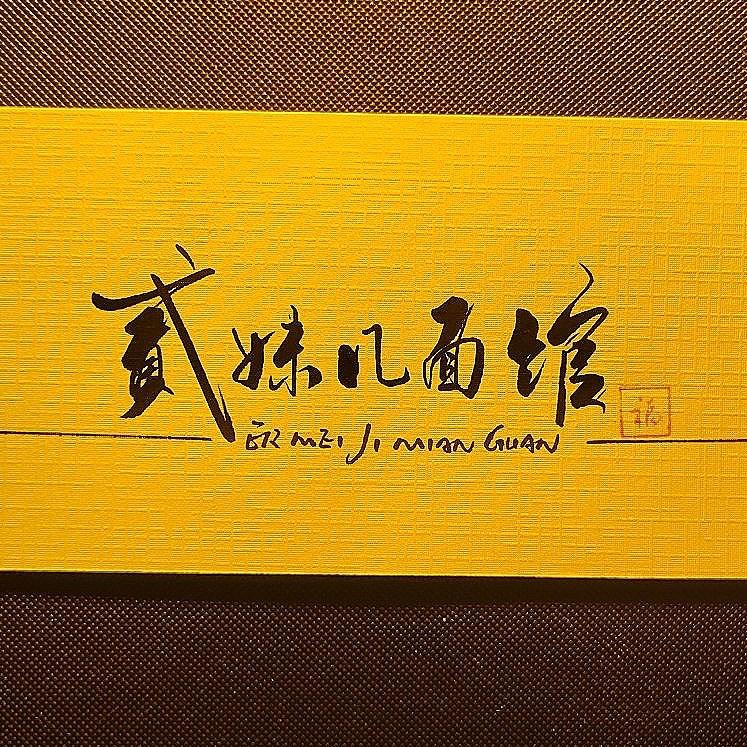 贰妹几面馆
ER MEI JI MIAN GUAN
福